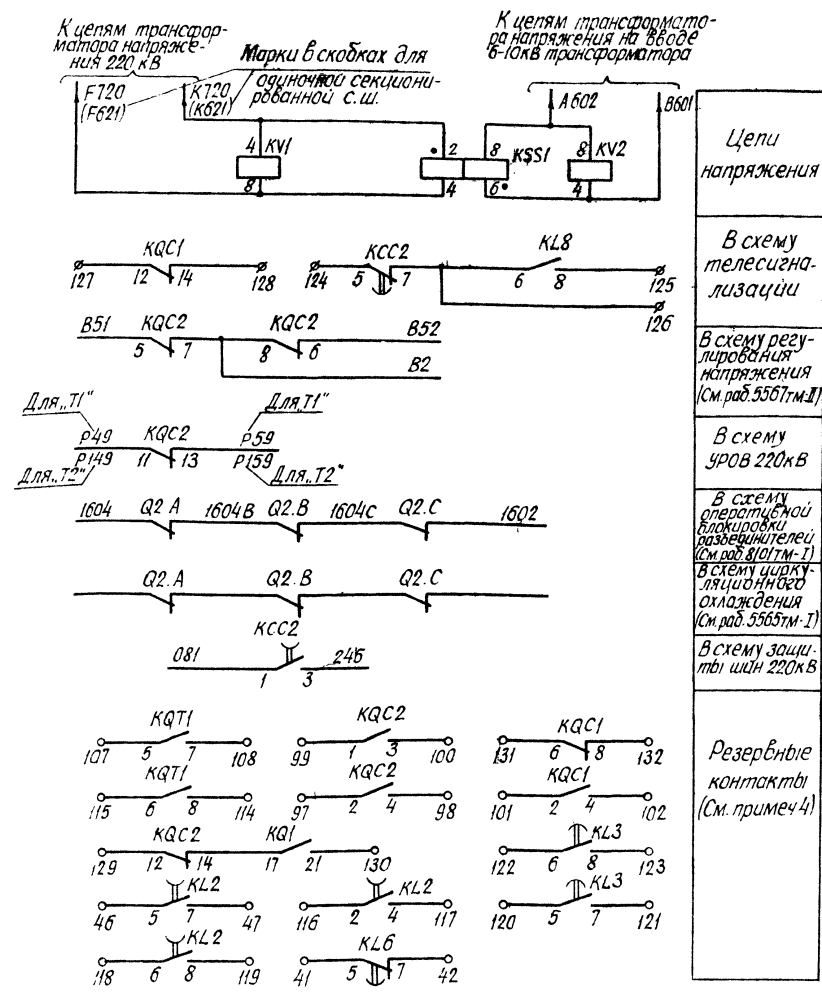 К цепям трансфор-
матора напряже-
ния 220 кВ
Марки в скобках для
одиночной секциони-
рованной с.ш.
К цепям трансформато-
ра напряжения на вводе
6-10кВ трансформатора
F720
(F621)
K720
(K621)
A602
B601
4 KV1
8
2
4
8 KSS1
6
8 KV2
4
Цепи
напряжения
KQC1
127 12 14 128
KCC2
124 5 7
KL8
6 8 125
126
В схему
телесигна-
лизации
B51 KQC2 KQC2 B52
5 7 8 6
B2
В схему регу-
лирования
напряжения
(См. раб. 5567тм-II)
Для „Т1"
Для „Т1"
P49 KQC2 P59
P149 11 13 P159
Для „Т2"
Для „Т2"
В схему
УРОВ 220кВ
1604 Q2.A 1604B Q2.B 1604C Q2.C 1602
В схему
оперативной
блокировки
разъединителей
(См. раб. 8101тм-I)
Q2.A Q2.B Q2.C
В схему цирку-
ляционного
охлаждения
(См. раб. 5565тм-I)
KCC2
081 1 3 246
В схему защи-
ты шин 220кВ
KQT1 KQC2 KQC1
107 5 7 108 99 1 3 100 131 6 8 132
KQT1 KQC2 KQC1
115 6 8 114 97 2 4 98 101 2 4 102
KQC2 KQ1 KL3
129 12 14 17 21 130 122 6 8 123
KL2 KL2 KL3
46 5 7 47 116 2 4 117 120 5 7 121
KL2 KL6
118 6 8 119 41 5 7 42
Резервные
контакты
(См. примеч 4)